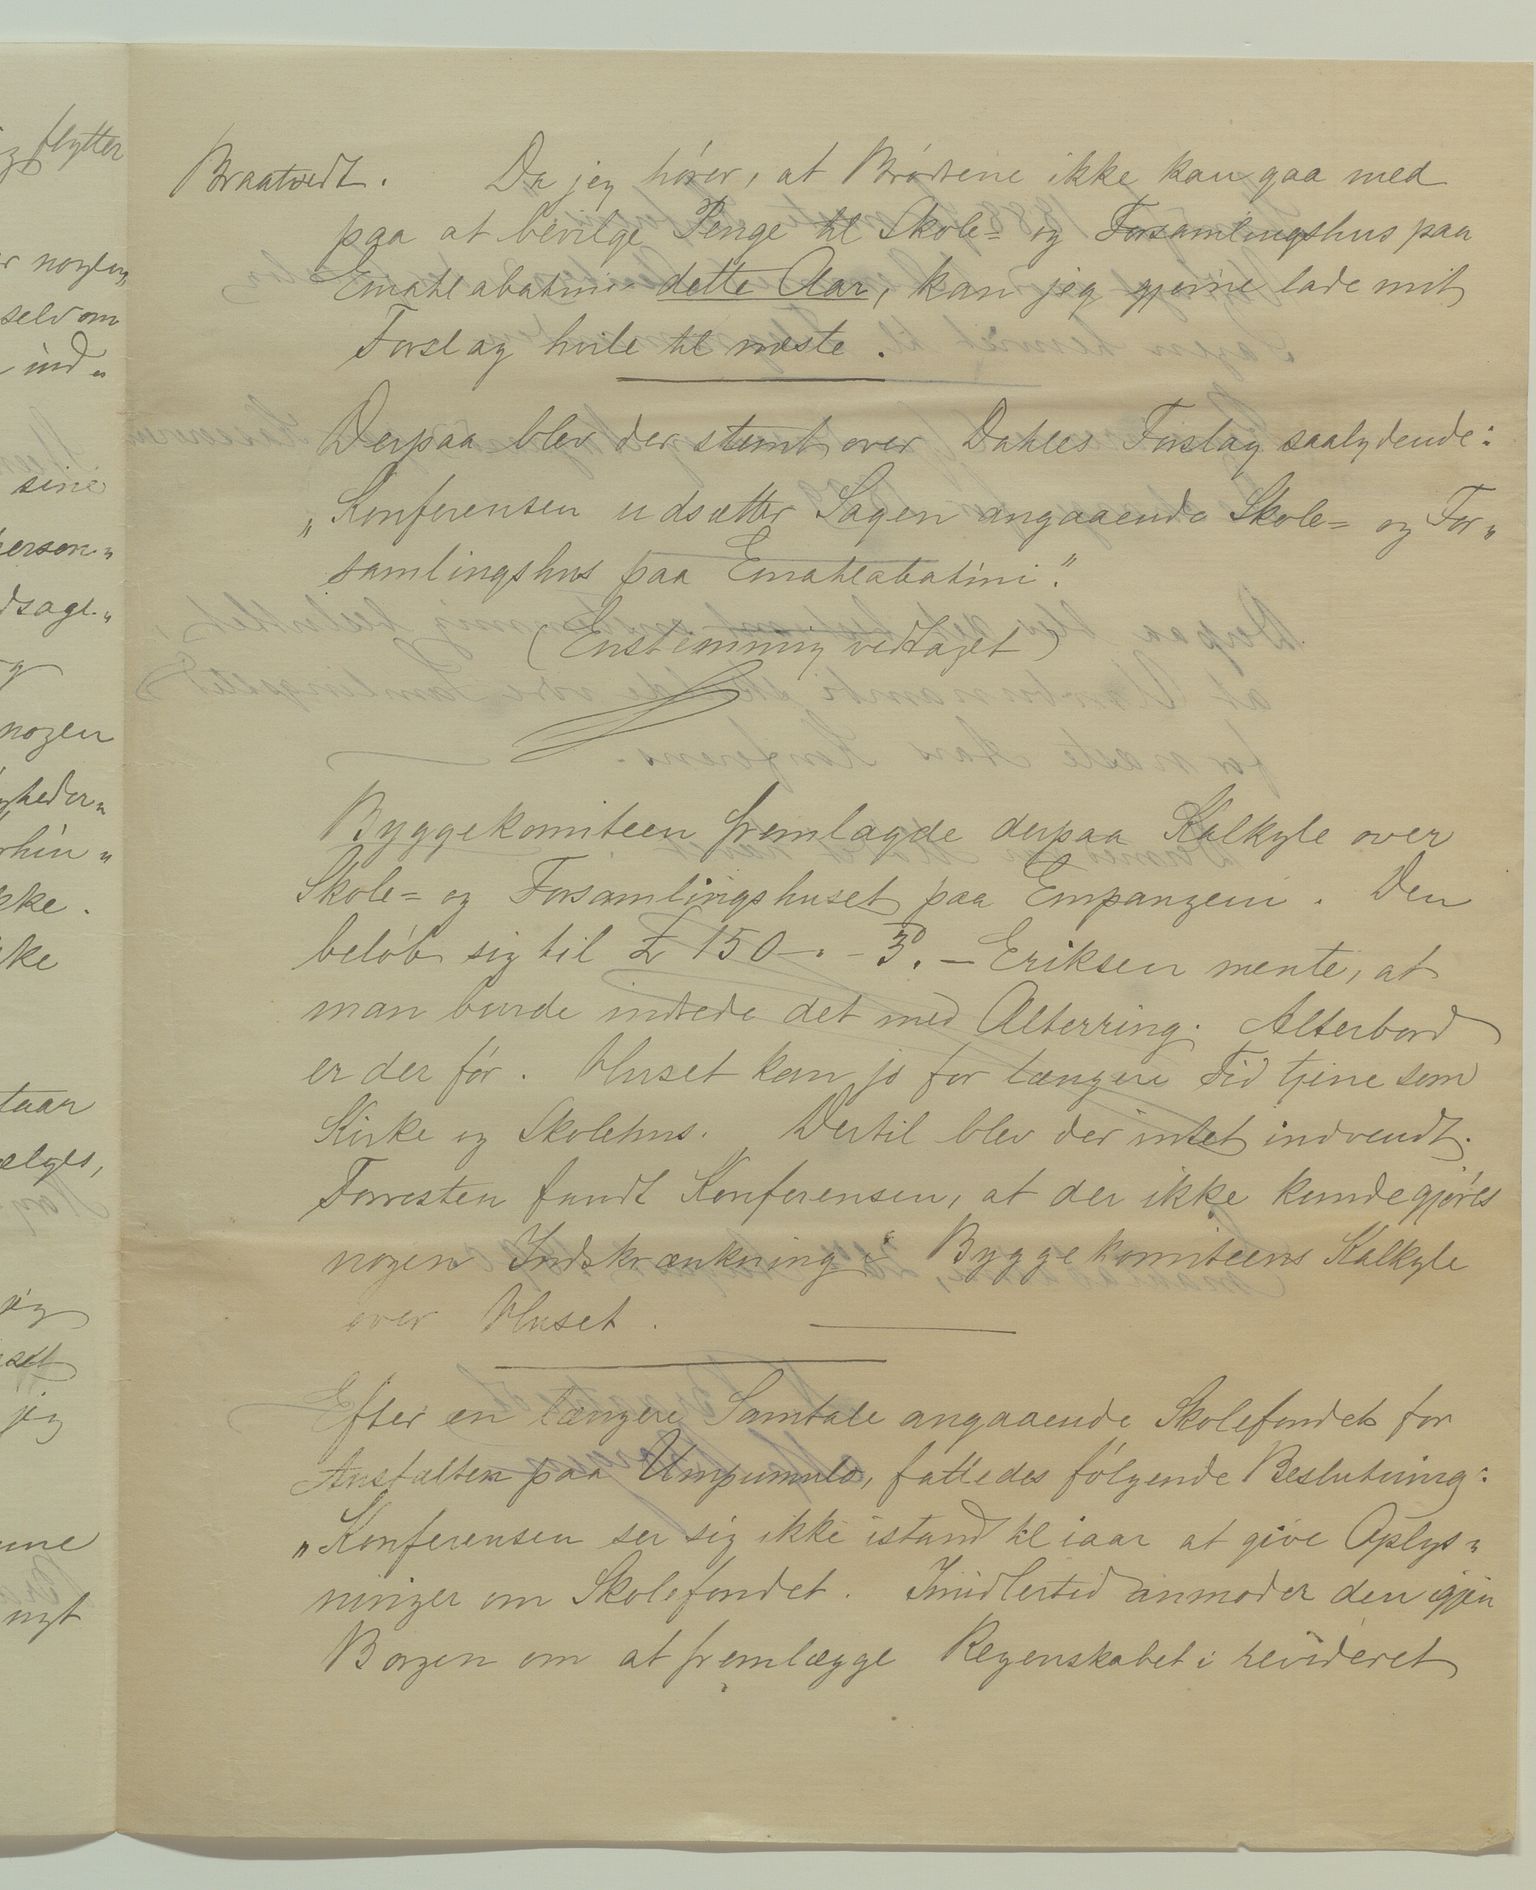 Braatvedt. Da jeg hører, at Brødrene ikke kan gaa med
paa at bevilge Penge til Skole= og Forsamlingshus paa
Emahlabatini dette Aar, kan jeg gjerne lade mit
Forslag hvile til næste.
Derpaa blev der stemt over Dahles Forslag saalydende:
„Konferensen udsætter Sagen angaaende Skole= og For„
samlingshus paa Emahlabatini."
(Enstemmig vedtaget)
Byggekomiteen fremlagde derpaa Kalkyle over
Skole= og Forsamlingshuset paa Empangeni. Den
beløb sig til £ 150-.-3. — Eriksen mente, at
man burde indrede det med Alterring. Alterbord
er der før. Huset kan jo for længere Tid tjene som
Kirke og Skolehus. Dertil blev der intet indvendt.
Forresten fandt Konferensen, at der ikke kunde gjøres
nogen Indskrænkning i Byggekomiteens Kalkyle
over Huset.
Efter en længere Samtale angaaende Skolefondet for
Anstalten paa Umpumulo, fattedes følgende Beslutning:
„Konferensen ser sig ikke istand til iaar at give Oplys„
ninger om Skolefondet. Imidlertid anmoder den igjen
Borgen om at fremlægge Regenskabet i revideret
flytter
nogen
selv om
ind„
sine
person„
dsage„
nogen
gheder„
rhin„
kke.
ikke
staar
ælges,
sig
jeg
nyt